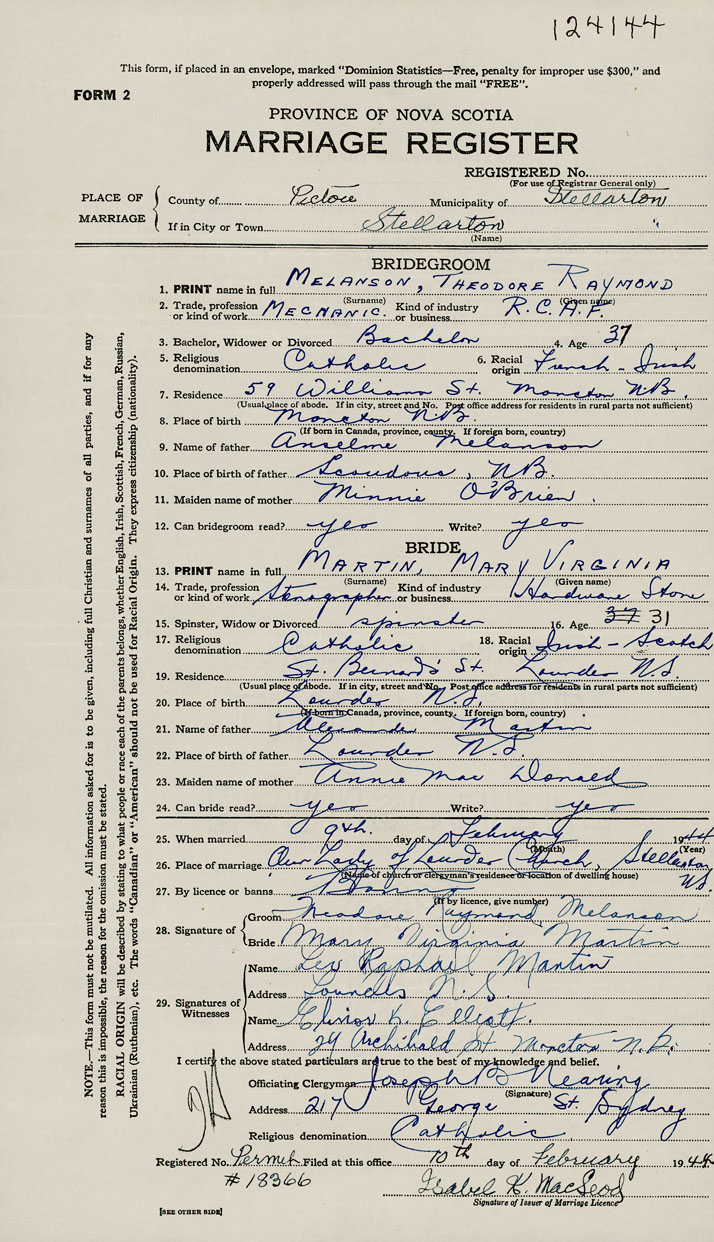 124144
This form, if placed in an envelope, marked "Dominion Statistics—Free, penalty for improper use $300," and
properly addressed will pass through the mail "FREE".
FORM 2
PROVINCE OF NOVA SCOTIA
MARRIAGE REGISTER
REGISTERED No.
(For use of Registrar General only)
PLACE OF MARRIAGE
County of Pictou Municipality of Stellarton
If in City or Town Stellarton
(Name)
BRIDEGROOM
1. PRINT name in full MELANSON, THEODORE RAYMOND
(Surname) (Given name)
2. Trade, profession or kind of work MECHANIC. Kind of industry or business R.C.A.F.
3. Bachelor, Widower or Divorced Bachelor 4. Age 37
5. Religious denomination Catholic 6. Racial origin French - Irish
7. Residence 59 Williams St. Moncton N.B.
(Usual place of abode. If in city, street and No. Post office address for residents in rural parts not sufficient)
8. Place of birth Moncton N.B.
(If born in Canada, province, county. If foreign born, country)
9. Name of father Anselme Melanson
10. Place of birth of father Scoudouc, N.B.
11. Maiden name of mother Minnie O'Brien.
12. Can bridegroom read? yes Write? yes
BRIDE
13. PRINT name in full MARTIN, MARY VIRGINIA
(Surname) (Given name)
14. Trade, profession or kind of work Stenographer Kind of industry or business Hardware Store
15. Spinster, Widow or Divorced spinster 16. Age 37 31
17. Religious denomination Catholic 18. Racial origin Irish - Scotch
19. Residence St. Bernard's St. Lourdes N.S.
(Usual place of abode. If in city, street and No. Post office address for residents in rural parts not sufficient)
20. Place of birth Lourdes N.S.
(If born in Canada, province, county. If foreign born, country)
21. Name of father Alexander Martin
22. Place of birth of father Lourdes N.S.
23. Maiden name of mother Annie MacDonald
24. Can bride read? yes Write? yes
25. When married 9th. day of February 1944
(Month) (Year)
26. Place of marriage Our Lady of Lourdes Church, Stellarton N.S.
(Name of church or clergyman's residence or location of dwelling house)
27. By licence or banns Banns
(If by licence, give number)
28. Signature of
Groom Theodore Raymond Melanson
Bride Mary Virginia Martin
29. Signatures of Witnesses
Name Leo Raphael Martin
Address Lourdes N.S.
Name Elinor K. Elliott.
Address 29 Archibald St Moncton N.B.
I certify the above stated particulars are true to the best of my knowledge and belief.
Officiating Clergyman Joseph B Nearing
(Signature)
Address 217 George St. Sydney
Religious denomination Catholic
Registered No. Permit Filed at this office 10th day of February 1944
# 18366
Isabel K. MacLeod
Signature of Issuer of Marriage Licence
[SEE OTHER SIDE]
NOTE.—This form must not be mutilated. All information asked for is to be given, including full Christian and surnames of all parties, and if for any
reason this is impossible, the reason for the omission must be stated.
RACIAL ORIGIN will be described by stating to what people or race each of the parents belongs, whether English, Irish, Scottish, French, German, Russian,
Ukrainian (Ruthenian), etc. The words "Canadian" or "American" should not be used for Racial Origin. They express citizenship (nationality).